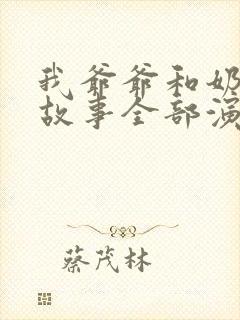 我爷爷和奶
故事全部演
蔡茂林